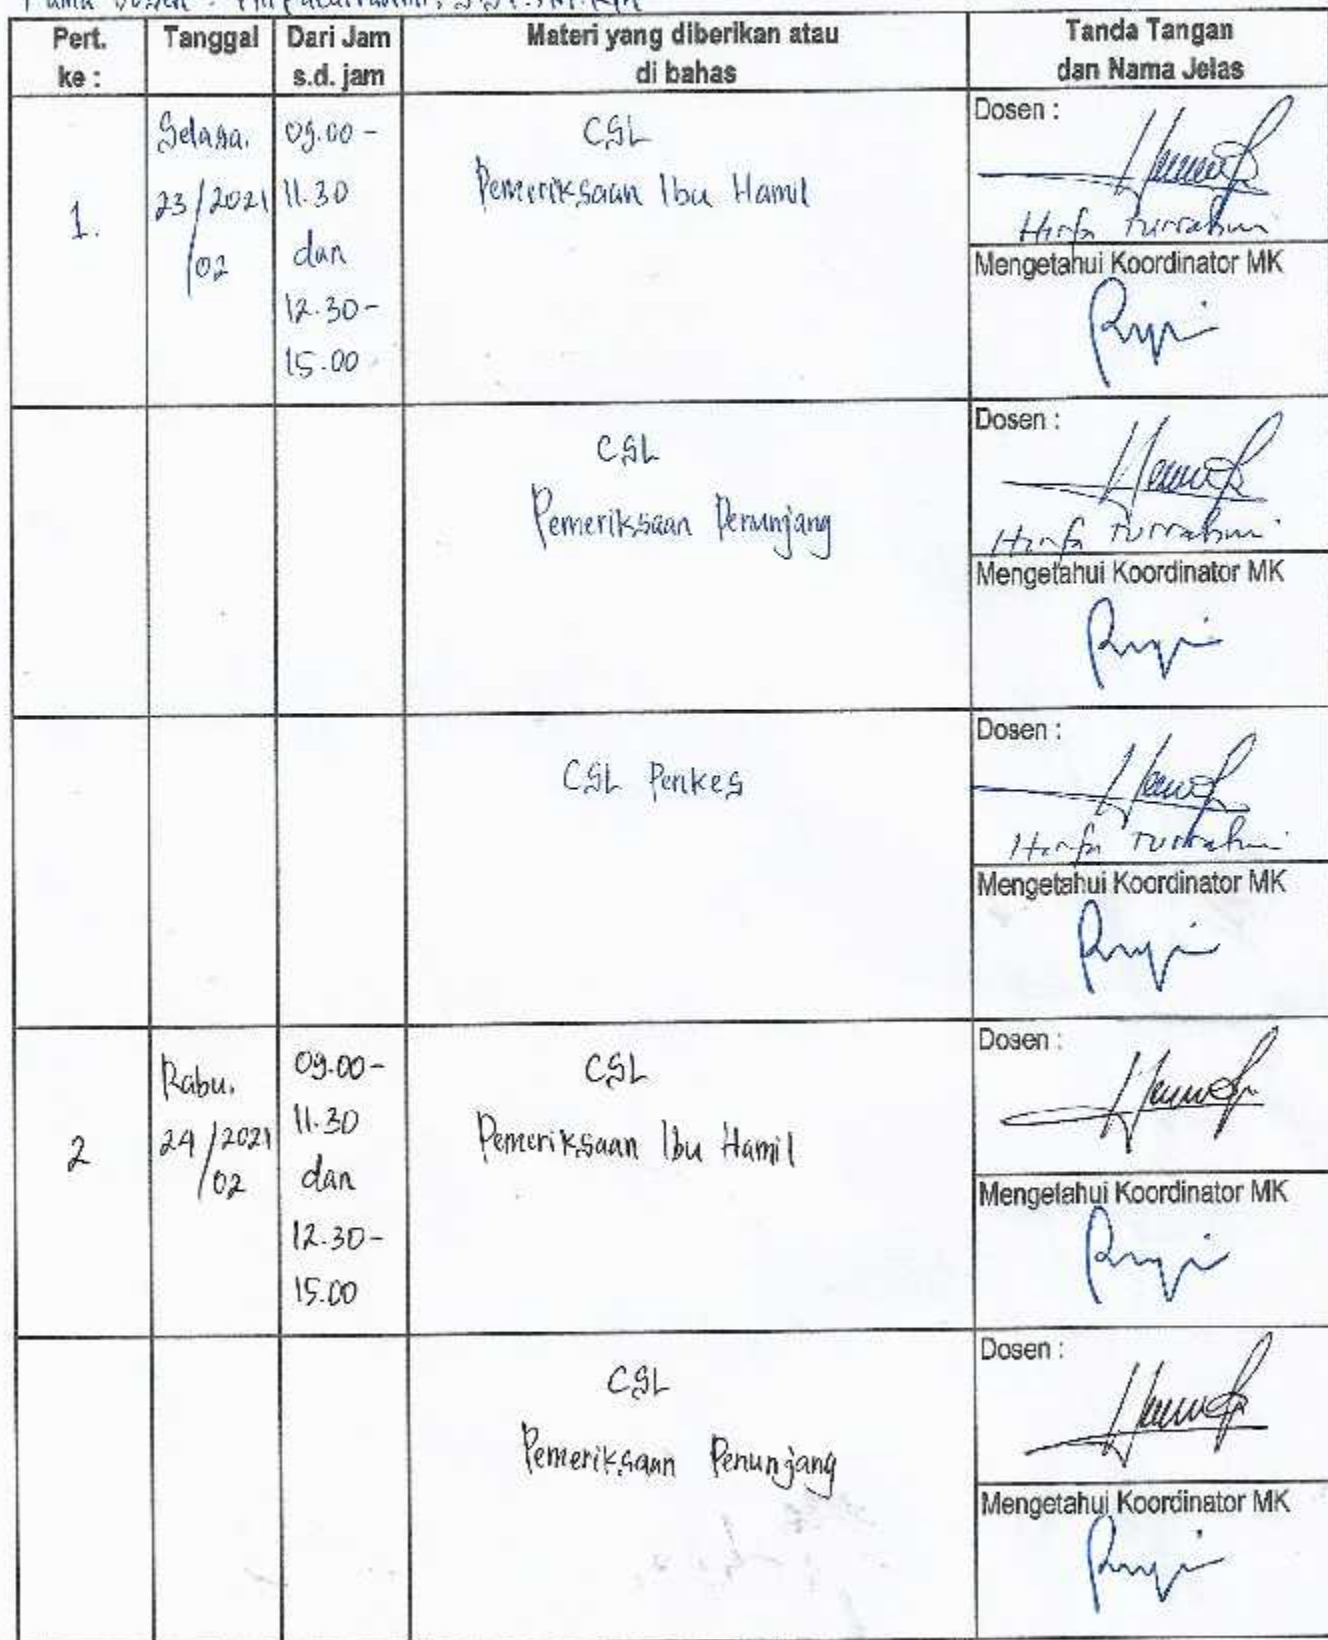 Nama Dosen :
Pert. ke :
Tanggal
Dari Jam s.d. jam
Materi yang diberikan atau di bahas
Tanda Tangan dan Nama Jelas
1.
Selasa,
23/2021
/02
09.00 -
11.30
dan
12.30 -
15.00
CSL
Pemeriksaan Ibu Hamil
Dosen :
Hirfa Turrahmi
Mengetahui Koordinator MK
CSL
Pemeriksaan Penunjang
Dosen :
Hirfa Turrahmi
Mengetahui Koordinator MK
CSL Penkes
Dosen :
Hirfa Turrahmi
Mengetahui Koordinator MK
2
Rabu,
24/2021
/02
09.00 -
11.30
dan
12.30 -
15.00
CSL
Pemeriksaan Ibu Hamil
Dosen :
Mengetahui Koordinator MK
CSL
Pemeriksaan Penunjang
Dosen :
Mengetahui Koordinator MK